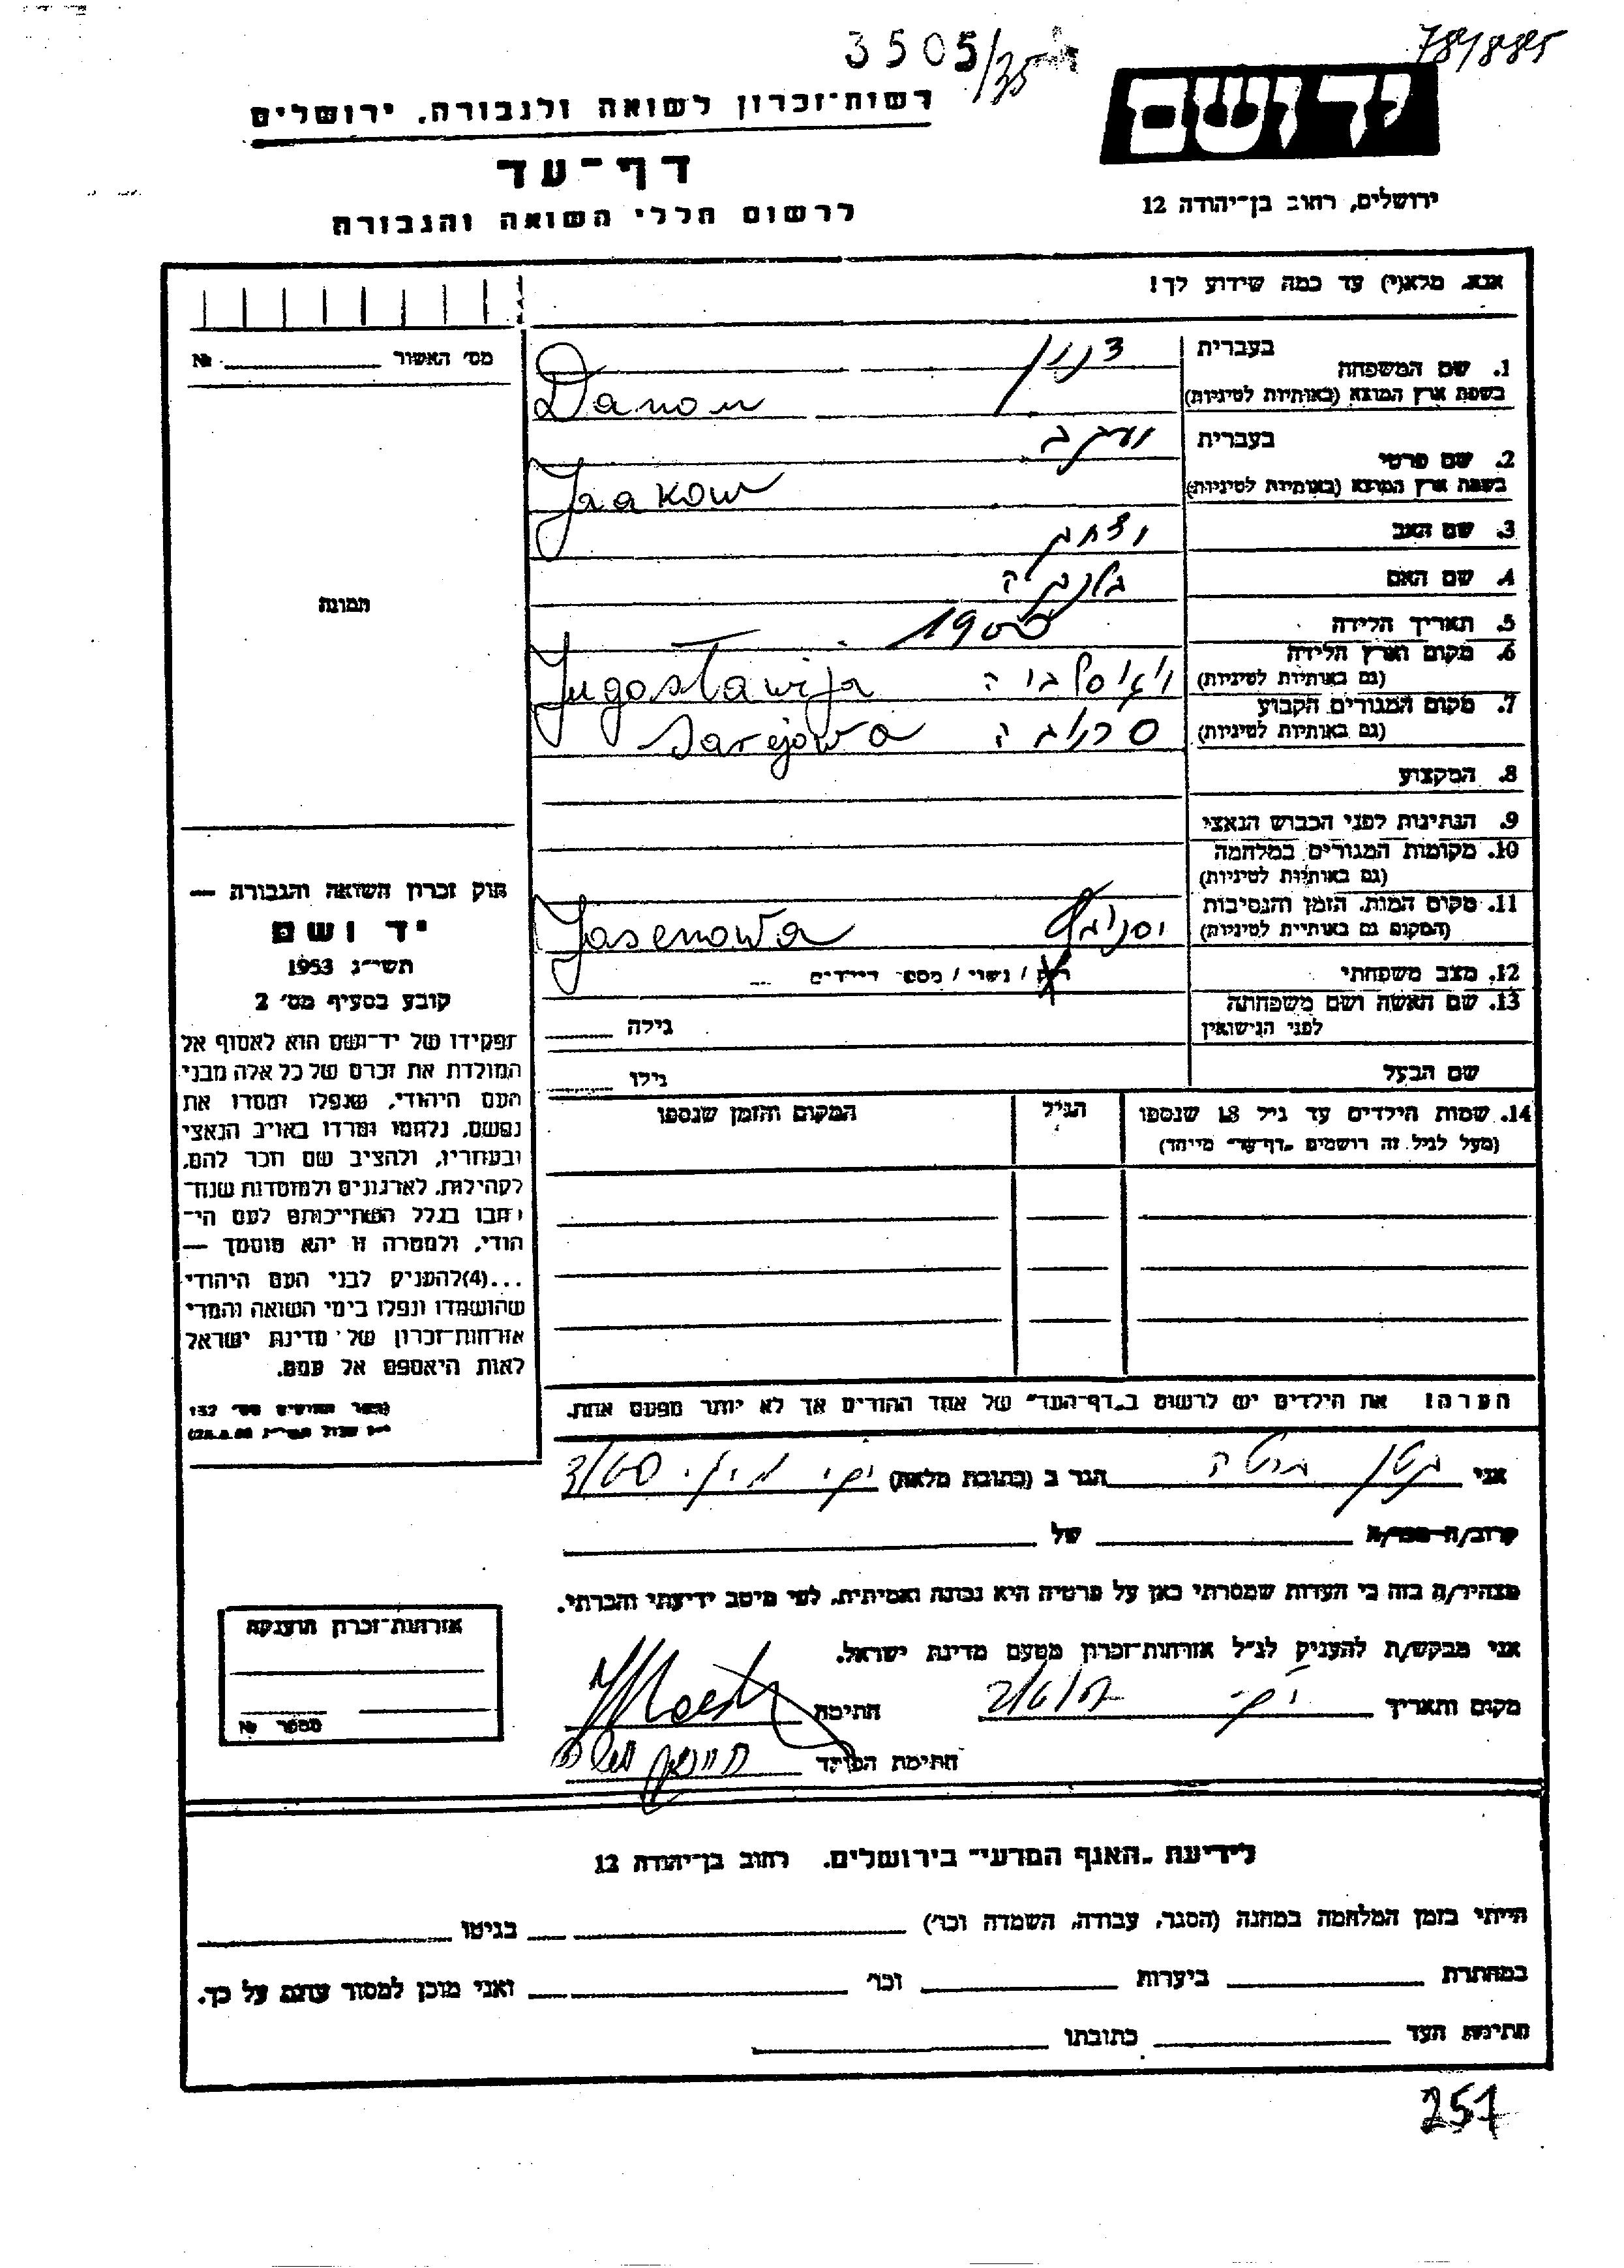 3505/35
78/885
יד ושם
רשות-זכרון לשואה ולגבורה, ירושלים
דף-עד
לרשום חללי השואה והגבורה
ירושלים, רחוב בן-יהודה 12
אנא, מלא(י) עד כמה שידוע לך!
מס' האשור № 
1. שם המשפחה
בעברית דנון
בשפת ארץ המוצא (באותיות לטיניות) Danon
2. שם פרטי
בעברית יעקב
בשפת ארץ המוצא (באותיות לטיניות) Jaakow
3. שם האב יצחק
4. שם האם
5. תאריך הלידה 1900
6. מקום וארץ הלידה
(גם באותיות לטיניות) יוגוסלביה Jugoslawija
7. מקום המגורים הקבוע
(גם באותיות לטיניות) Sarejowa
8. המקצוע
9. הנתינות לפני הכבוש הנאצי
10. מקומות המגורים במלחמה
(גם באותיות לטיניות)
11. מקום המות, הזמן והנסיבות
(המקום גם באותיות לטיניות) Jasenowa
12. מצב משפחתי רווק / נשוי / מספר הילדים
13. שם האשה ושם משפחתה
לפני הנישואין גילה
שם הבעל גילו
14. שמות הילדים עד גיל 18 שנספו הגיל המקום והזמן שנספו
(מעל לגיל זה רושמים "דף-עד" מיוחד)
הערה! את הילדים יש לרשום ב"דף-העד" של אחד ההורים אך לא יותר מפעם אחת.
תמונה
חוק זכרון השואה והגבורה —
יד ושם
תשי"ג 1953
קובע בסעיף מס' 2
תפקידו של יד-ושם הוא לאסוף אל
המולדת את זכרם של כל אלה מבני
העם היהודי, שנפלו ומסרו את
נפשם, נלחמו ומרדו באויב הנאצי
ובעוזריו, ולהציב שם וזכר להם,
לקהילות, לארגונים ולמוסדות שנח־
רבו בגלל השתייכותם לעם הי־
הודי, ולמטרה זו יהא מוסמך —
...(4) להעניק לבני העם היהודי
שהושמדו ונפלו בימי השואה והמרי
אזרחות-זכרון של מדינת ישראל
לאות היאספם אל עמם.
(ספר החוקים מס' 132
אני הגר ב (כתובת מלאה)
קרוב/ה מכר/ה של
מצהיר/ה בזה כי העדות שמסרתי כאן על פרטיה היא נכונה ואמיתית, לפי מיטב ידיעתי והכרתי.
אני מבקש/ת להעניק לנ"ל אזרחות-זכרון מטעם מדינת ישראל.
מקום ותאריך חתימה
חתימת הפוקד
אזרחות-זכרון הוענקה
מספר №
לידיעת "האגף המדעי" בירושלים, רחוב בן-יהודה 12
הייתי בזמן המלחמה במחנה (הסגר, עבודה, השמדה וכו') בגיטו
במחתרת ביערות וכו' ואני מוכן למסור עדות על כך.
חתימת העד כתובתו
257